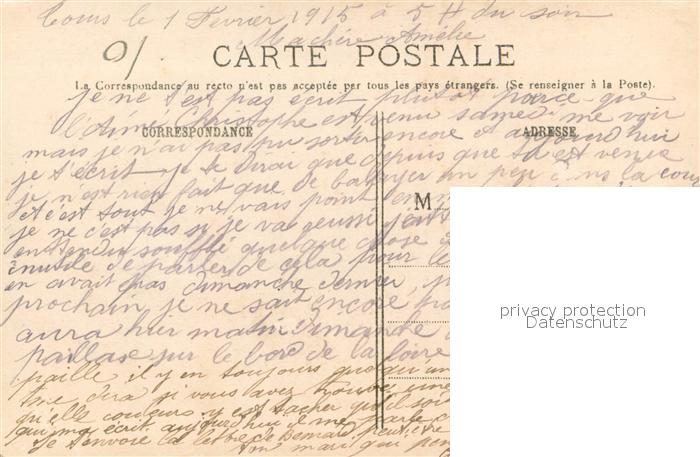 Tours le 1 Fevrier 1915 à 5 H du soir
Ma chère Amélie
CARTE POSTALE
La Correspondance au recto n'est pas acceptée par tous les pays étrangers. (Se renseigner à la Poste).
je ne t'est pas écrit plutot parce que
Christophe est venu samedi me voir
CORRESPONDANCE
ADRESSE
mais je n'ai pas pu sortir encore et aujourd'hui
je t'écrit je te dirai que depuis que tu est venue
je n'est rien fait que de balayer un peu dans la cour
et c'est tout je ne vais point en
je ne c'est pas si je va
M
entendu soufflé quelque chose
inutile de parler de cela pour le
en avait pas dimanche dernier
prochain je ne sait encore
aura hier matin Dimanche
paillase sur le bord de la loire
paille il y en toujours
me dira si vous avez trouvé une
qu'elle couleurs y est tacher qu'il soit
qui m'a écrit aujourd'hui il me parle
Je t'envoie la lettre de Bernard peut être
ton mari qui
privacy protection
Datenschutz